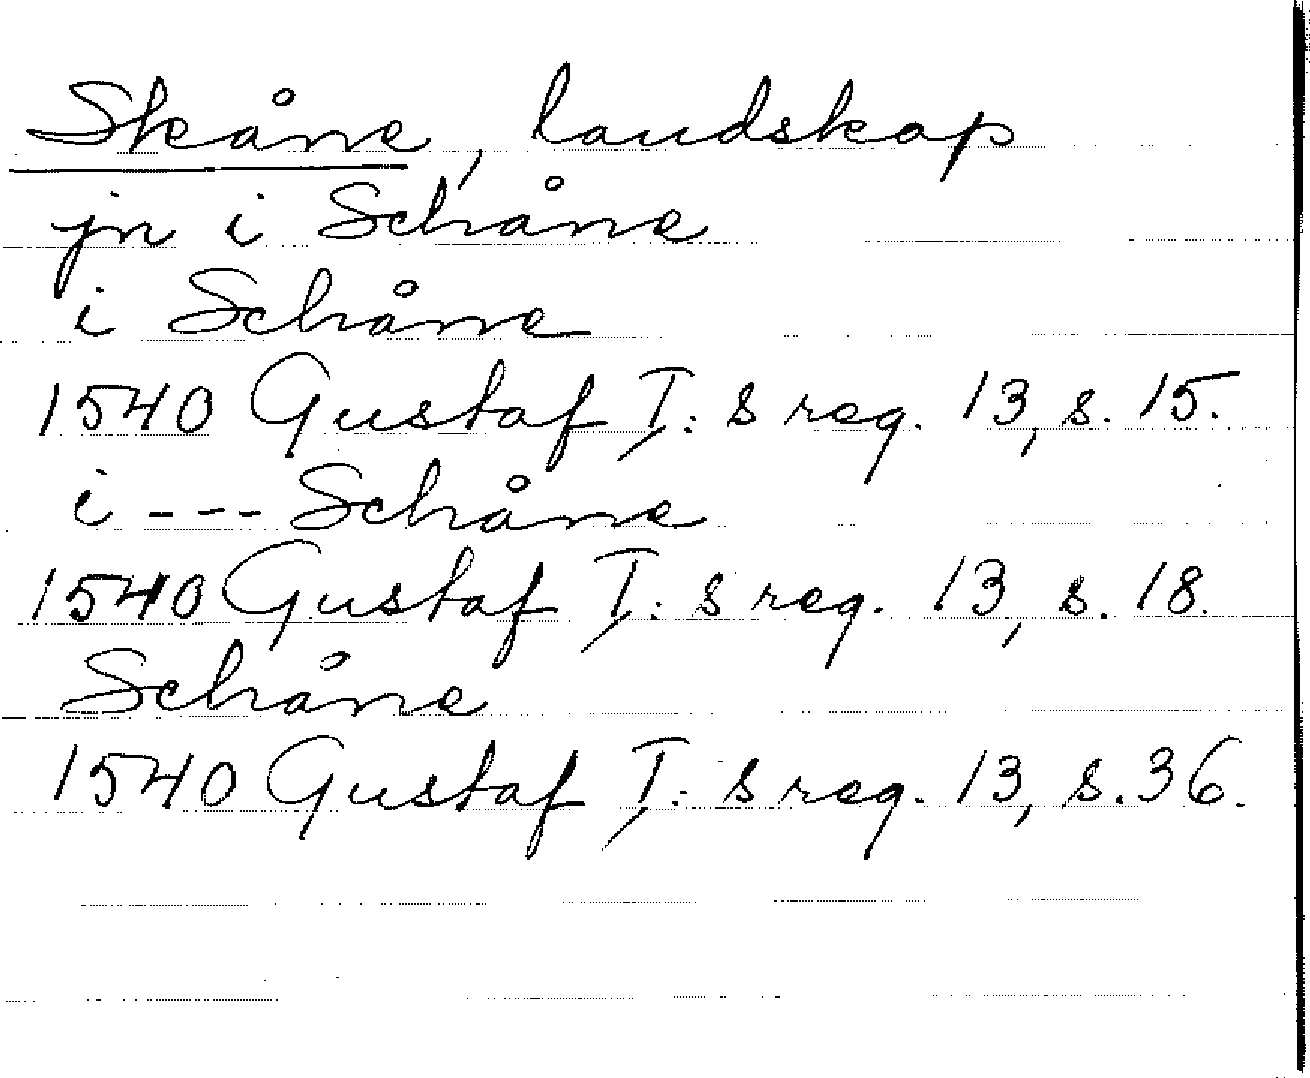 Skåne, landskap
jn i Schåne
i Schåne
1540 Gustaf I:s reg. 13, s. 15.
i --- Schåne
1540 Gustaf I:s reg. 13, s. 18.
Schåne
1540 Gustaf I:s reg. 13, s. 36.